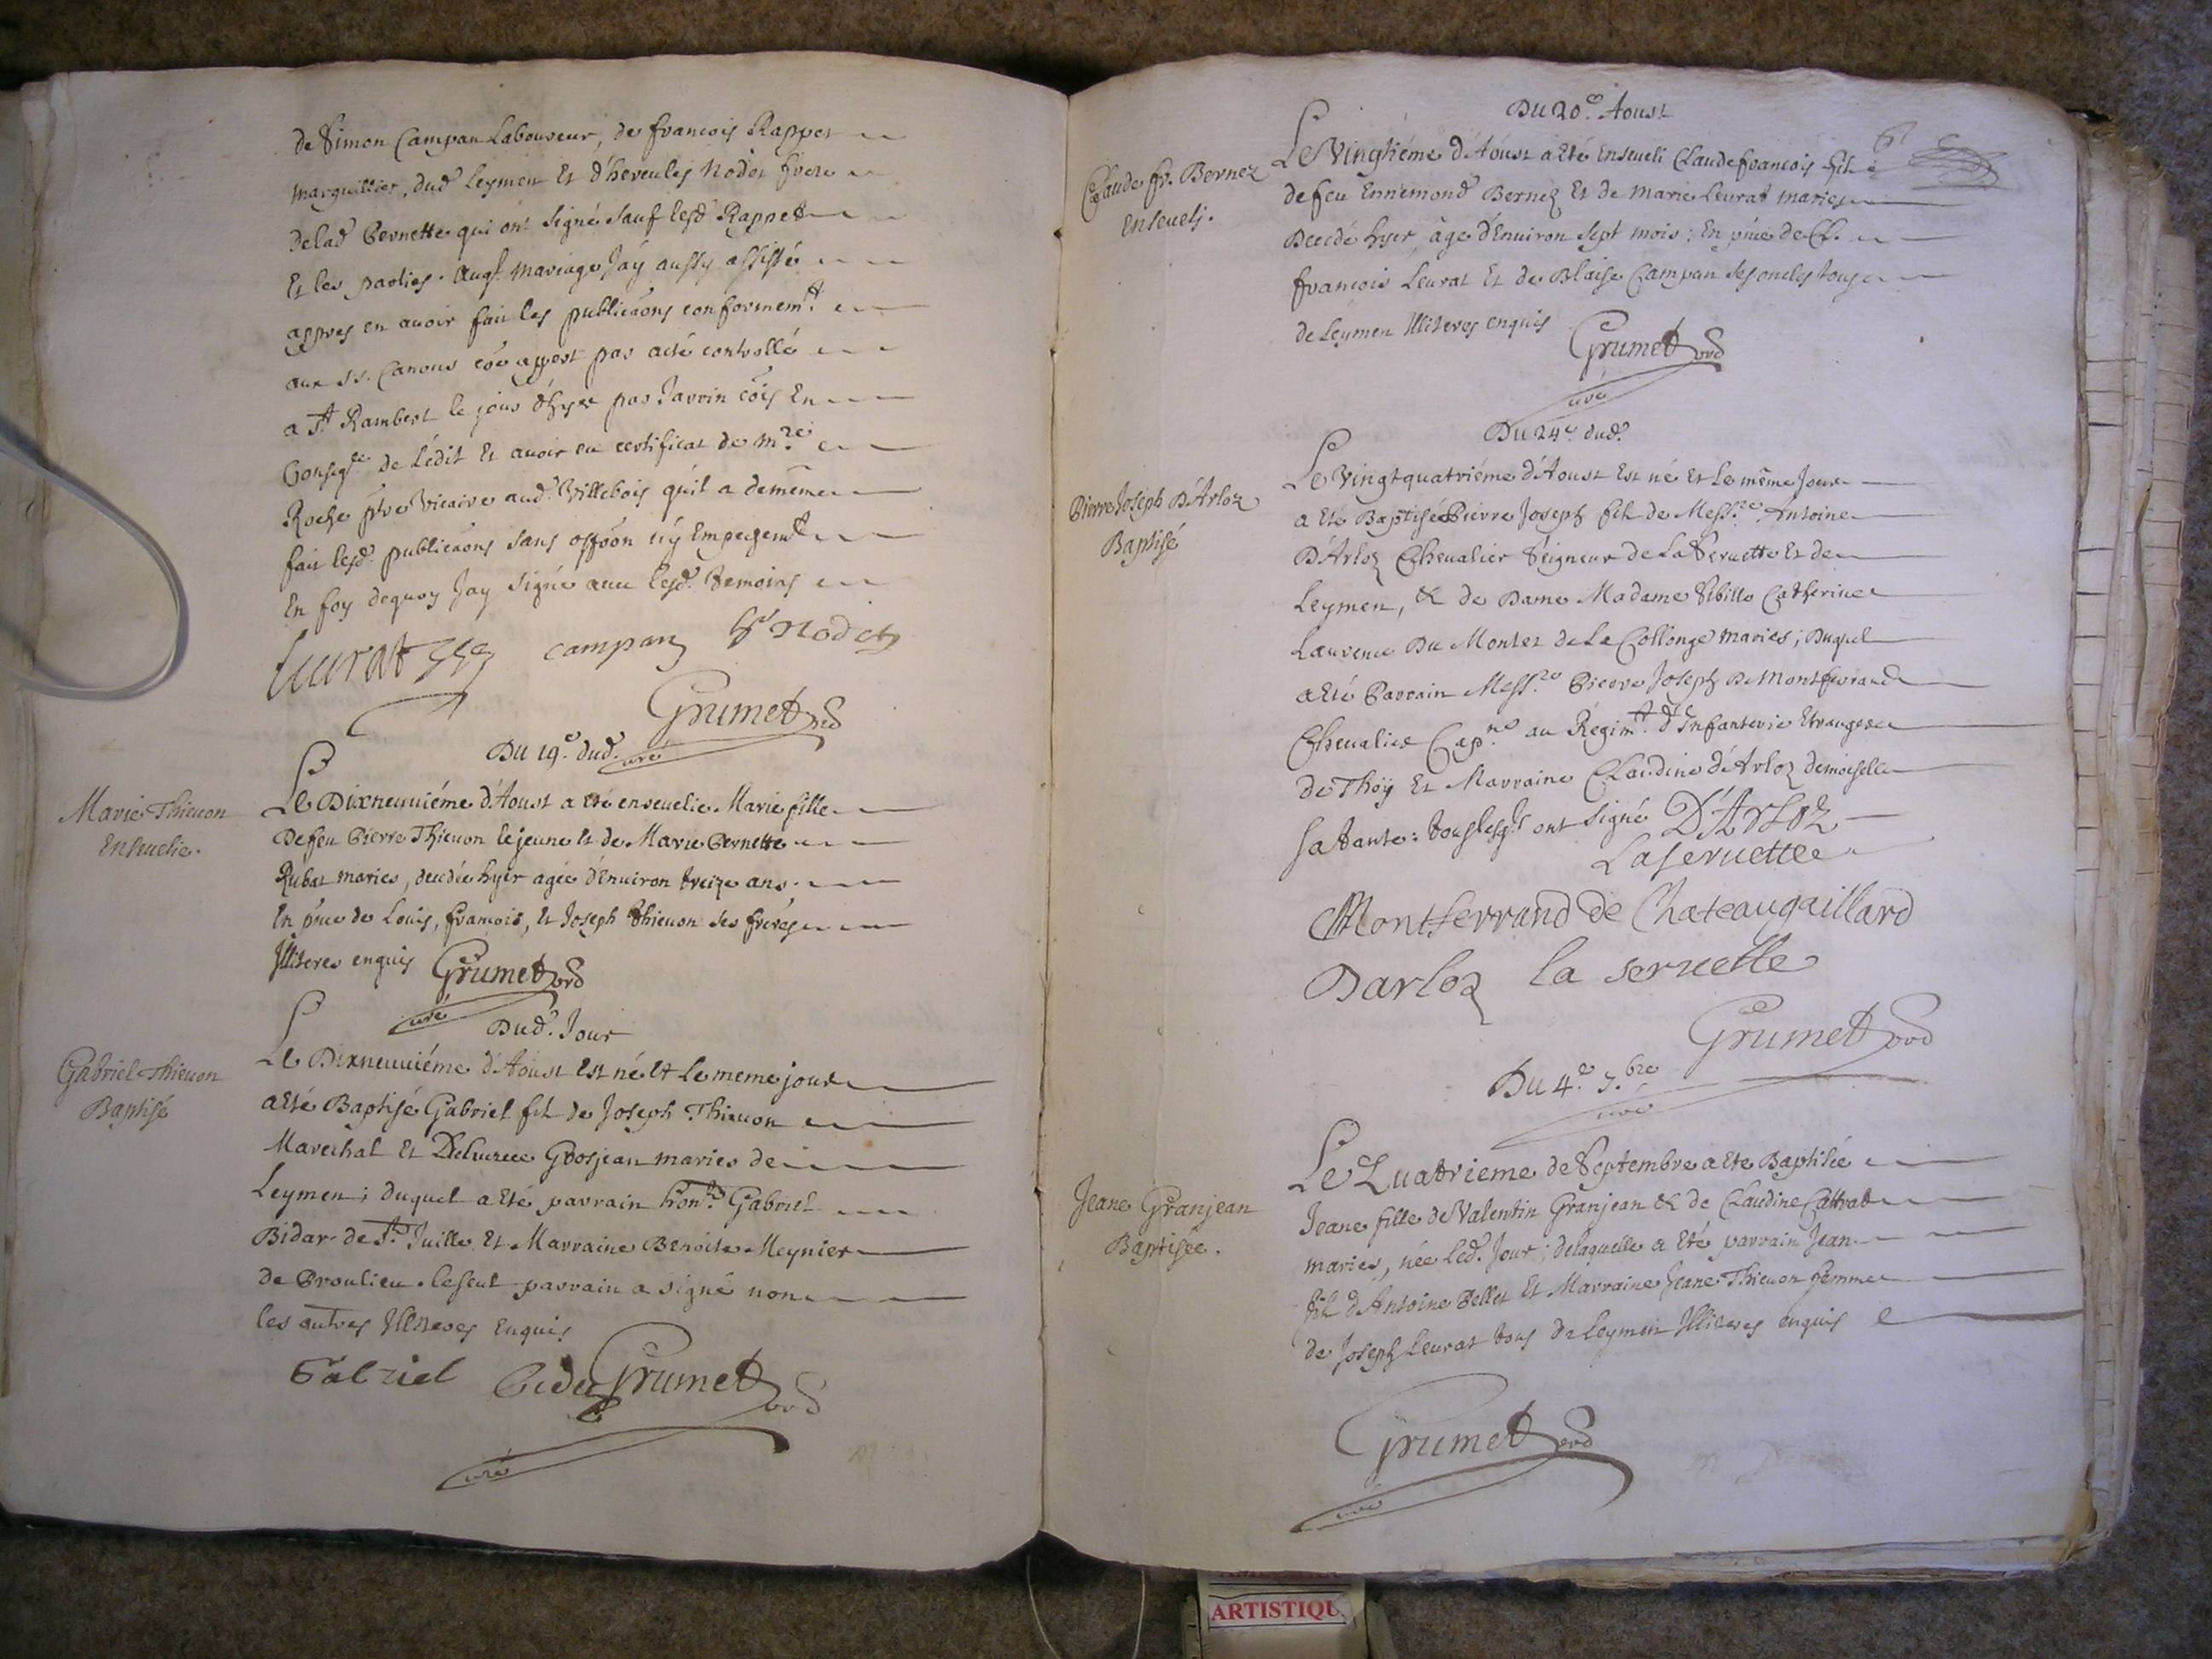 de Simon Campan Laboureur, de francois Rappet
marguillier, dud Leymen Et d'hercules Nodet frere
delad Pernette qui ont signé sauf lesd Rappet
Et les parties. Auql mariage Jay aussy assisté
appres en avoir fait les publicaons conformemt
aux SS. Canons coe appert par acte controllé
a St Rambert le jour d'hyer par Jarrin cois En
Conseqce de L'édit Et avoir eu certificat de mre
Roche ptre Vicaire aud. Villebois quil a de meme
fait lesd. publicaons sans oppoon ny Empechemt
En foy dequoy Jay signé avec lesd. temoins
Leurat campan h nodet
Grumet
curé
Du 19e dud.
Marie Thievon
Ensevelie.
Le Dixneuviéme d'Aoust a eté ensevelie Marie fille
Defeu Pierre Thievon lejeune et de Marie Pernette
Rubat maries, decedée hyer agée d'Environ treize ans
En pnce de Louis, francois, et Joseph thievon ses freres
Illiteres enquis Grumet
curé
Dud. Jour
Gabriel Thievon
Baptisé
Le Dixneuviéme d'Aoust Est né Et le meme jour
a Eté Baptisé Gabriel fils de Joseph Thievon
Marechal Et Grosjean maries de
Leymen; duquel a Eté parrain hon. Gabriel
Bidar de St. Juille Et Marraine Benoite Meynier
de Proulieu. le seul parrain a signé non
les autres Illiteres Enquis
Gabriel Grumet
curé
Du 20e. Aoust
Claude fr. Bernez
Enseveli.
Le Vingtiéme d'Aoust a Eté Enseveli Claude francois fils
defeu Ennemond Bernez Et de Marie Leurat maries
Decedé hyer, âge d'Environ sept mois; En pnce de Cl.
francois Leurat Et de Blaise Campan ses oncles tous
de Leymen Illiteres enquis Grumet
curé
Du 24e dud.
Pierre Joseph D'Arloz
Baptisé
Le Vingtquatriéme d'Aoust Est né Et le même Jour
a Eté Baptisé Pierre Joseph fils de Messre Antoine
D'Arloz Chevalier Seigneur de La Servette Et de
Leymen, & de Dame Madame Sibille Catherine
Laurence Du Montet de La Collonge maries; Duquel
a Eté Parrain Messre Pierre Joseph De Montferrand
Chevalier Capne au Régimt d'Infanterie Etrangere
de Thoÿ Et Marraine Claudine d'Arloz demoiselle
sa tante: tous lesqls ont signé D'Arloz
Laservette
Montferrand de Chateaugaillard
Darloz la servette
Grumet
curé
Du 4e 7.bre
Jeane Granjean
Baptisée.
Le Quatrieme de Septembre a Eté Baptisée
Jeane fille de Valentin Granjean & de Claudine Cattrat
maries, née led. Jour; delaquelle a Eté parrain Jean
fils d'Antoine Bellet Et Marraine Jeane Thievon femme
de Joseph Leurat tous de Leymen Illiteres enquis
Grumet
curé
ARTISTIQU